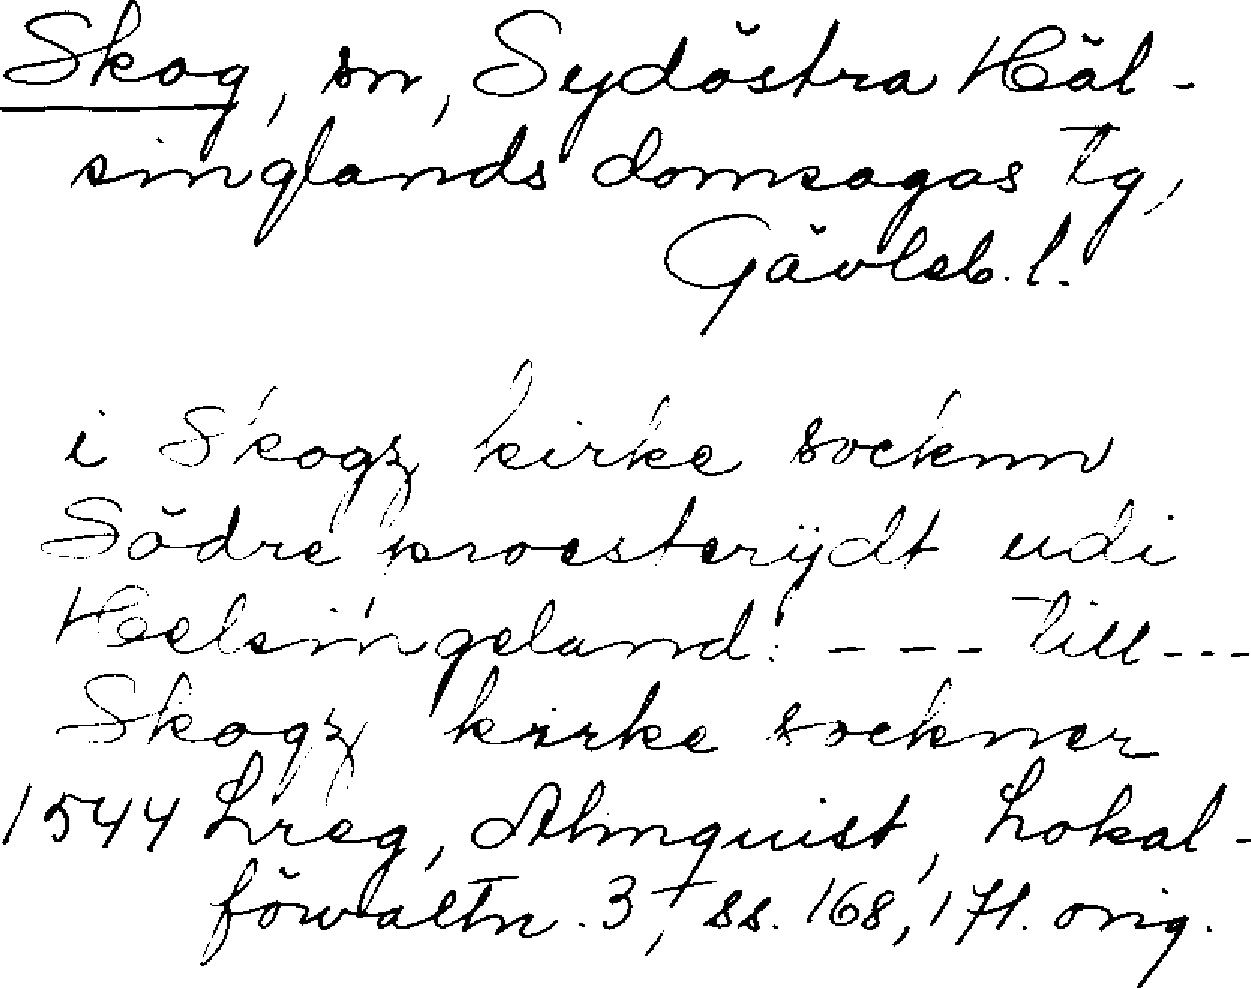 Skog, sn, Sydöstra Häl-
singlands domsagas tg,
Gävleb. l.
i Skogz kirke socknn
Södre proesterijdt udi
Helsingeland: --- till ---
Skogz kirke sockner
1544 Lreg, Almquist, Lokal-
förvaltn. 3, ss. 168, 171. orig.